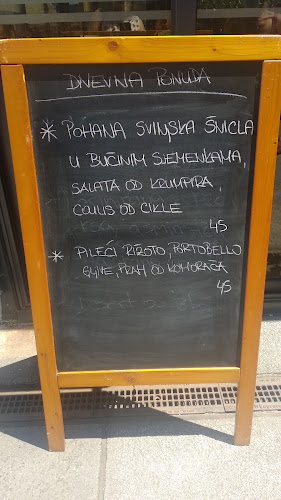 DNEVNA PONUDA
* POHANA SVINJSKA ŠNICLA
U BUČINIM SJEMENKAMA,
SALATA OD KRUMPIRA,
COULIS OD CIKLE
45
* PILEĆI RIŽOTO, PORTOBELLO
GLJIVE, PRAH OD KOMORAČA
45